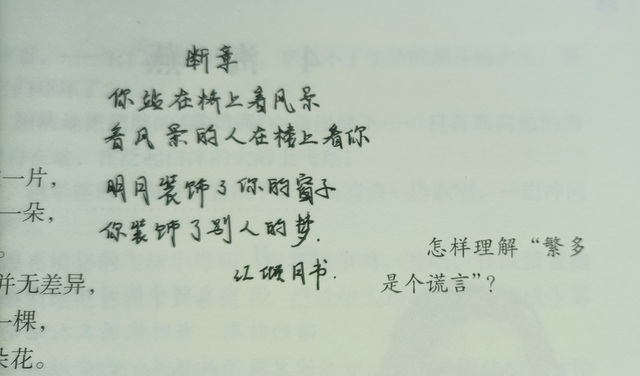 断章
你站在桥上看风景
看风景的人在楼上看你
一片,
明月装饰了你的窗子
一朵,
你装饰了别人的梦.
。
怎样理解“繁多
月书.
并无差异,
是个谎言”?
一棵,
朵花。